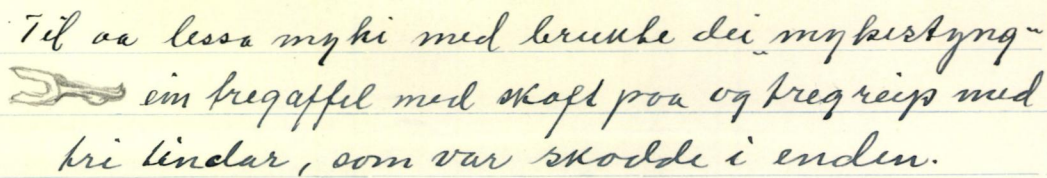 Til aa lessa myki med brukte dei „mykestyng"
ein tregaffel med skaft paa og tregreip med
tri tindar, som var skodde i enden.